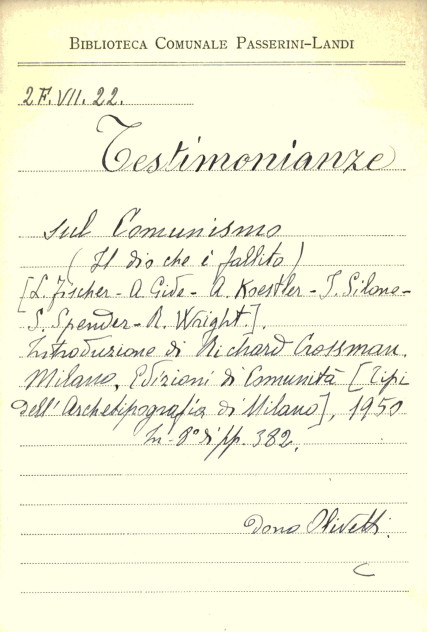 BIBLIOTECA COMUNALE PASSERINI-LANDI
2F.VII.22.
Testimonianze
sul Comunismo
(Il dio che è fallito)
[L. Fischer - A. Gide - A. Koestler - I. Silone -
S. Spender - R. Wright.].
Introduzione di Richard Crossman.
Milano, Edizioni di Comunità [Tipi
dell'Archetipografia di Milano], 1950
In-8° di pp. 382.
Dono Olivetti.
C